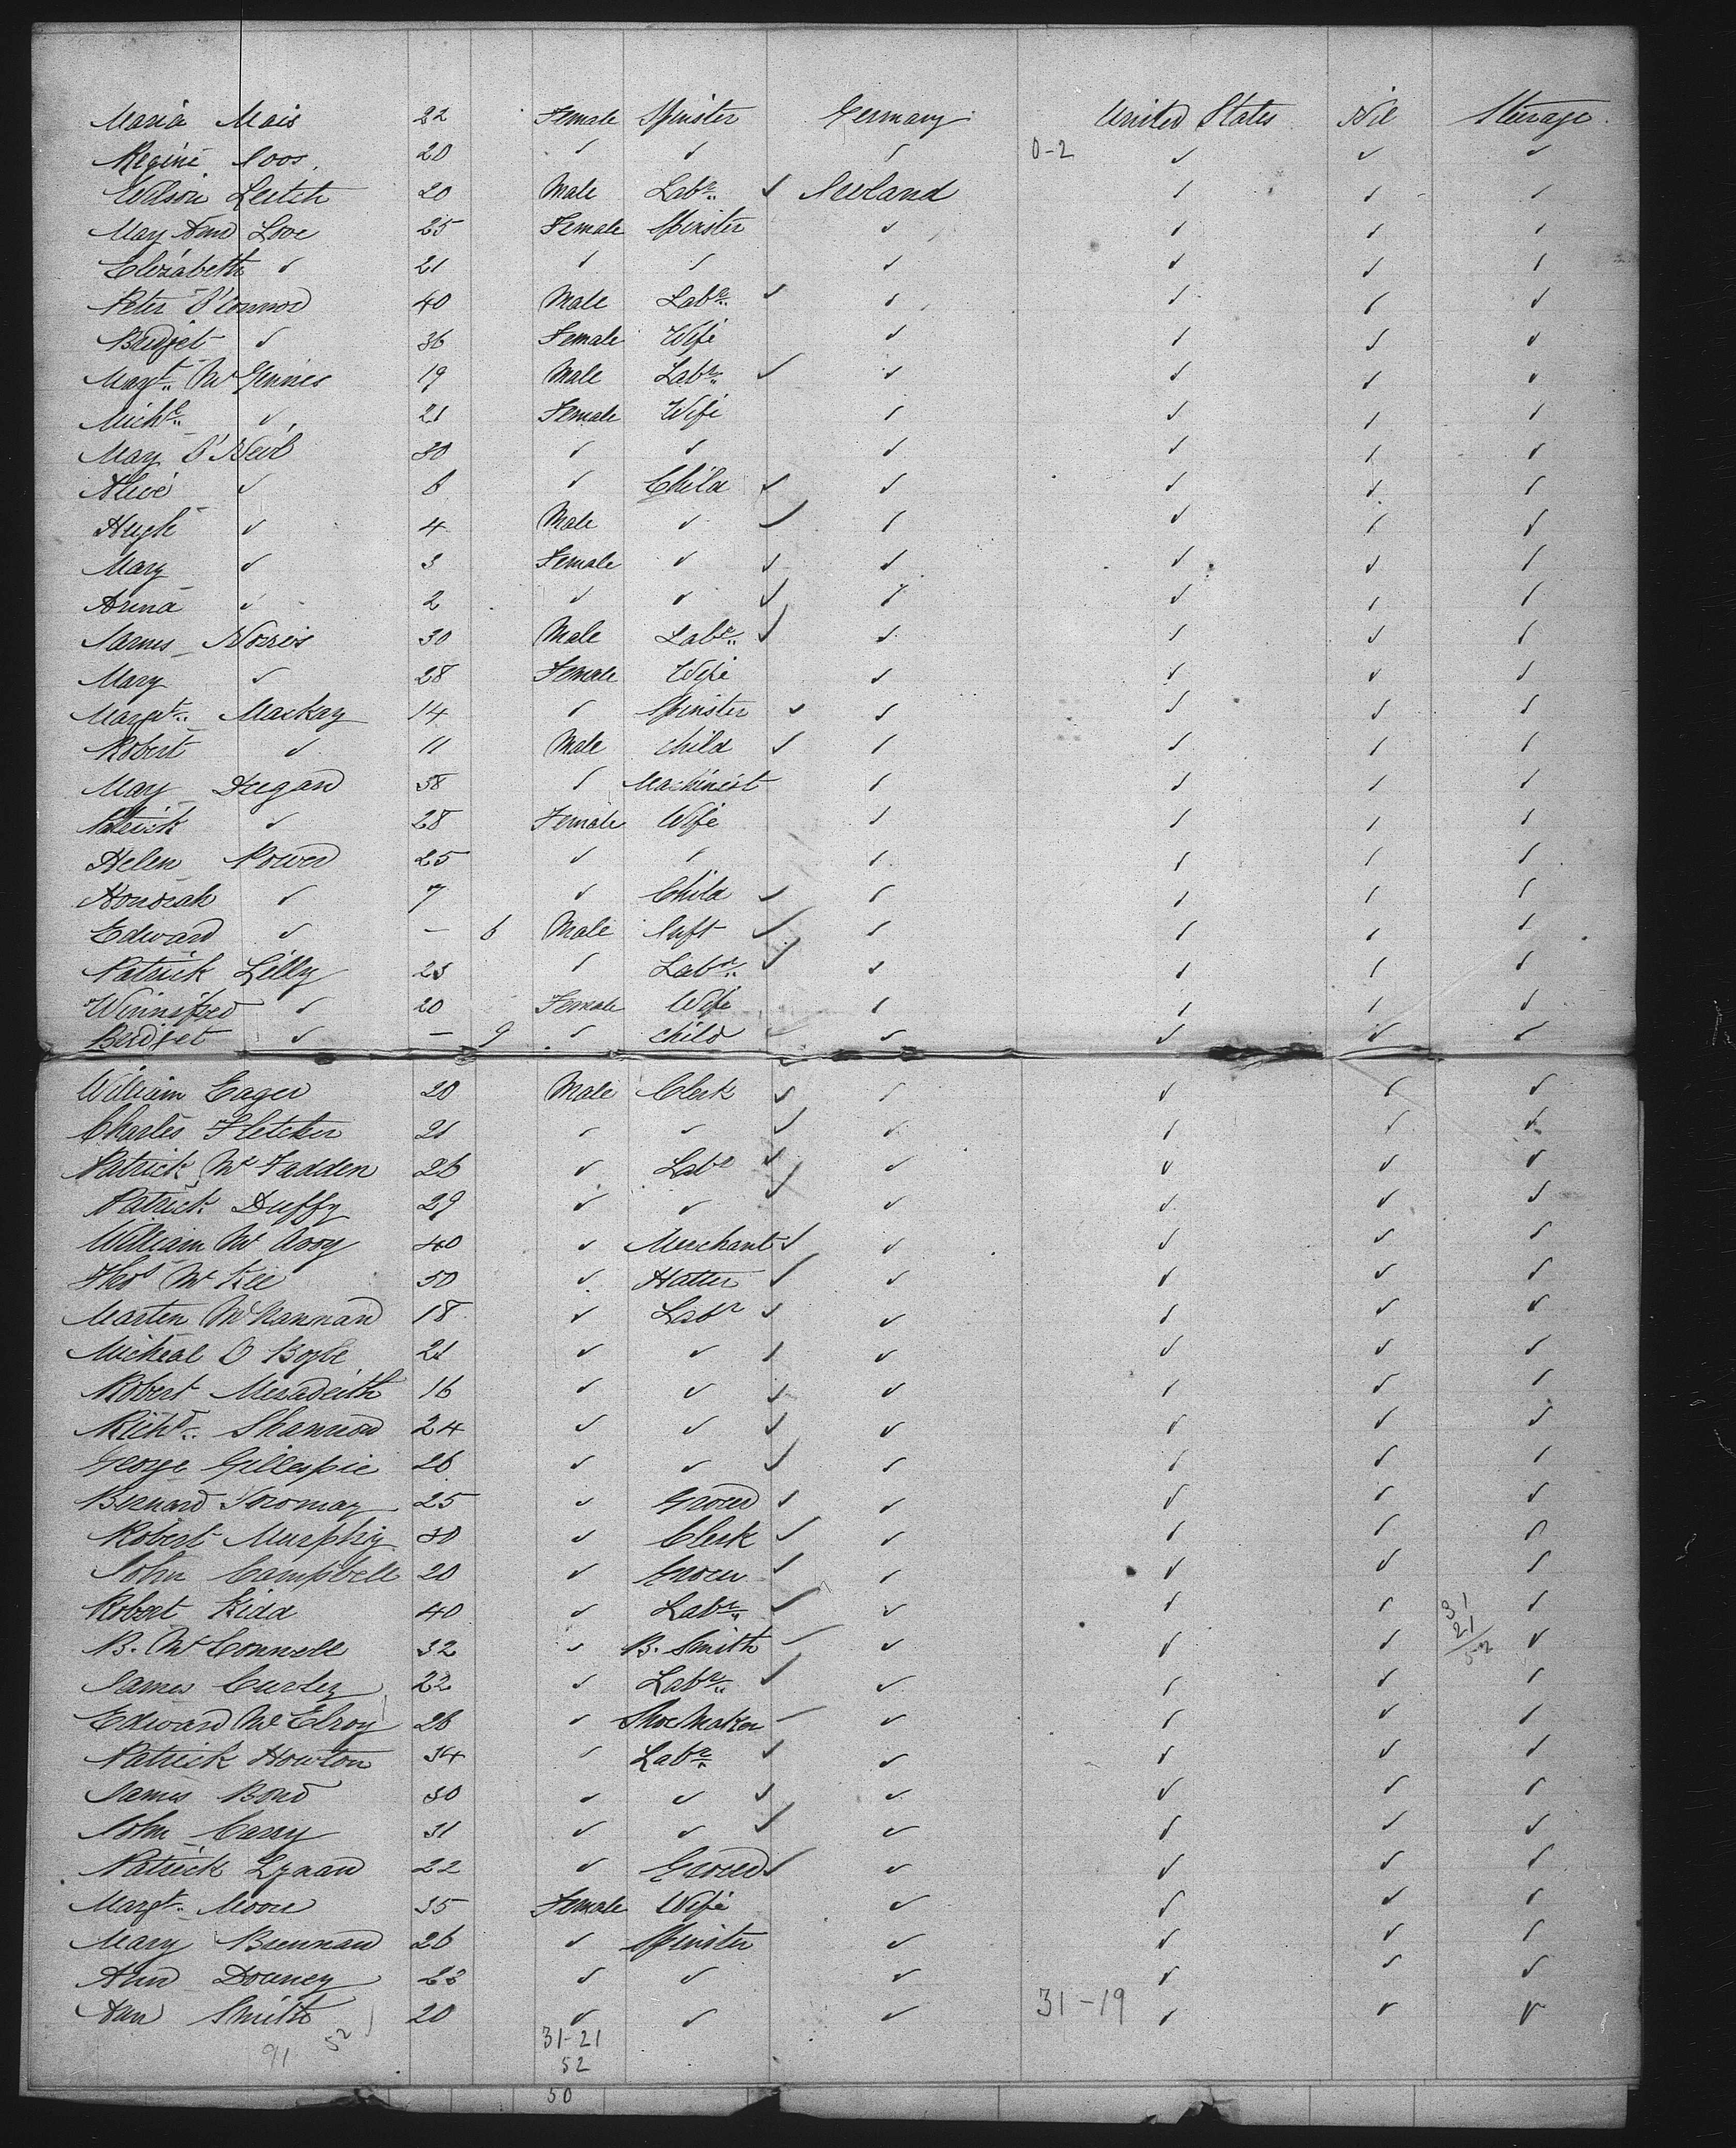 Maria Mais 22 Female Spinster Germany United States Nil Steerage
Regine Noos 20 ✓ ✓ ✓ 0-2 ✓ ✓ ✓
Wilson Leitch 20 Male Labr ✓ Ireland ✓ ✓ ✓
May Ann Love 25 Female Spinster ✓ ✓ ✓ ✓
Elizabeth ✓ 21 ✓ ✓ ✓ ✓ ✓ ✓
Peter O'Connor 40 Male Labr ✓ ✓ ✓ ✓ ✓
Bridget ✓ 36 Female Wife ✓ ✓ ✓ ✓
Margt McGinnes 19 Male Labr ✓ ✓ ✓ ✓ ✓
Michl ✓ 21 Female Wife ✓ ✓ ✓ ✓
May O'Neil 30 ✓ ✓ ✓ ✓ ✓ ✓
Alice ✓ 6 ✓ Child ✓ ✓ ✓ ✓ ✓
Hugh ✓ 4 Male ✓ ✓ ✓ ✓ ✓ ✓
Mary ✓ 3 Female ✓ ✓ ✓ ✓ ✓ ✓
Anna ✓ 2 ✓ ✓ ✓ ✓ ✓ ✓ ✓
James Norris 30 Male Labr ✓ ✓ ✓ ✓ ✓
Mary ✓ 28 Female Wife ✓ ✓ ✓ ✓
Margt Mackay 14 ✓ Spinster ✓ ✓ ✓ ✓ ✓
Robert ✓ 11 Male child ✓ ✓ ✓ ✓ ✓
May Keegan 38 ✓ Machinist ✓ ✓ ✓ ✓
Patrick ✓ 28 Female Wife ✓ ✓ ✓ ✓
Helen Power 25 ✓ ✓ ✓ ✓ ✓ ✓
Honorah ✓ 7 ✓ Child ✓ ✓ ✓ ✓ ✓
Edward ✓ – 6 Male Inft ✓ ✓ ✓ ✓ ✓
Patrick Lilly 23 ✓ Labr ✓ ✓ ✓ ✓ ✓
Winnifred ✓ 20 Female Wife ✓ ✓ ✓ ✓
Bridget ✓ – 9 ✓ child ✓ ✓ ✓ ✓ ✓
William Eager 20 Male Clerk ✓ ✓ ✓ ✓ ✓
Charles Fletcher 21 ✓ ✓ ✓ ✓ ✓ ✓ ✓
Patrick McFadden 26 ✓ Labr ✓ ✓ ✓ ✓ ✓
Patrick Duffy 29 ✓ ✓ ✓ ✓ ✓ ✓ ✓
William McAvoy 40 ✓ Merchant ✓ ✓ ✓ ✓ ✓
Thos McKee 50 ✓ Hatter ✓ ✓ ✓ ✓ ✓
Marten McNannan 18 ✓ Labr ✓ ✓ ✓ ✓ ✓
Micheal O Boyle 21 ✓ ✓ ✓ ✓ ✓ ✓ ✓
Robert Meradeith 16 ✓ ✓ ✓ ✓ ✓ ✓ ✓
Richd Shannon 24 ✓ ✓ ✓ ✓ ✓ ✓ ✓
George Gillespie 26 ✓ ✓ ✓ ✓ ✓ ✓ ✓
Bernard Toromay 25 ✓ Grocer ✓ ✓ ✓ ✓ ✓
Robert Murphy 30 ✓ Clerk ✓ ✓ ✓ ✓ ✓
John Campbell 20 ✓ Grocer ✓ ✓ ✓ ✓ ✓
Robert Kidd 40 ✓ Labr ✓ ✓ ✓ ✓ 31 ✓
21
B. McConnell 32 ✓ B. Smith ✓ ✓ ✓ ✓ 52 ✓
James Curley 22 ✓ Labr ✓ ✓ ✓ ✓ ✓
Edward McElroy 28 ✓ Shoe Maker ✓ ✓ ✓ ✓ ✓
Patrick Howton 34 ✓ Labr ✓ ✓ ✓ ✓ ✓
James Bond 30 ✓ ✓ ✓ ✓ ✓ ✓ ✓
John Carry 31 ✓ ✓ ✓ ✓ ✓ ✓ ✓
Patrick Lynan 22 ✓ Grocer ✓ ✓ ✓ ✓ ✓
Margt Moore 35 Female Wife ✓ ✓ ✓ ✓
Mary Brennan 26 ✓ Spinster ✓ ✓ ✓ ✓
Ann Downey 22 ✓ ✓ ✓ ✓ ✓ ✓
Ann Smith 20 ✓ ✓ ✓ 31-19 ✓ ✓ ✓
91 52 31-21
52
50